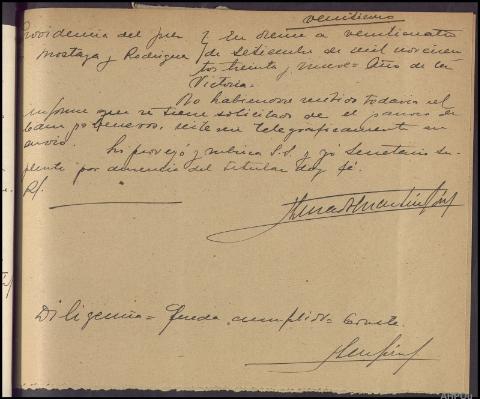 venticinco
Providencia del Juez } En Orense a veinticuatro
Mostaza y Rodriguez } de Setiembre de mil novecien
tos treinta y nueve= Año de la
Victoria=
No habiendose recibido todavia el
informe que se tiene solicitado de el parroco de
Campo Deneros, reiterese telegraficamente su
envio.
Lo proveyó y rubrica S.S. y yo Secretario su-
plente por ausencia del titular doy fé.
R/.
Diligencia= Queda cumplido= Conste.